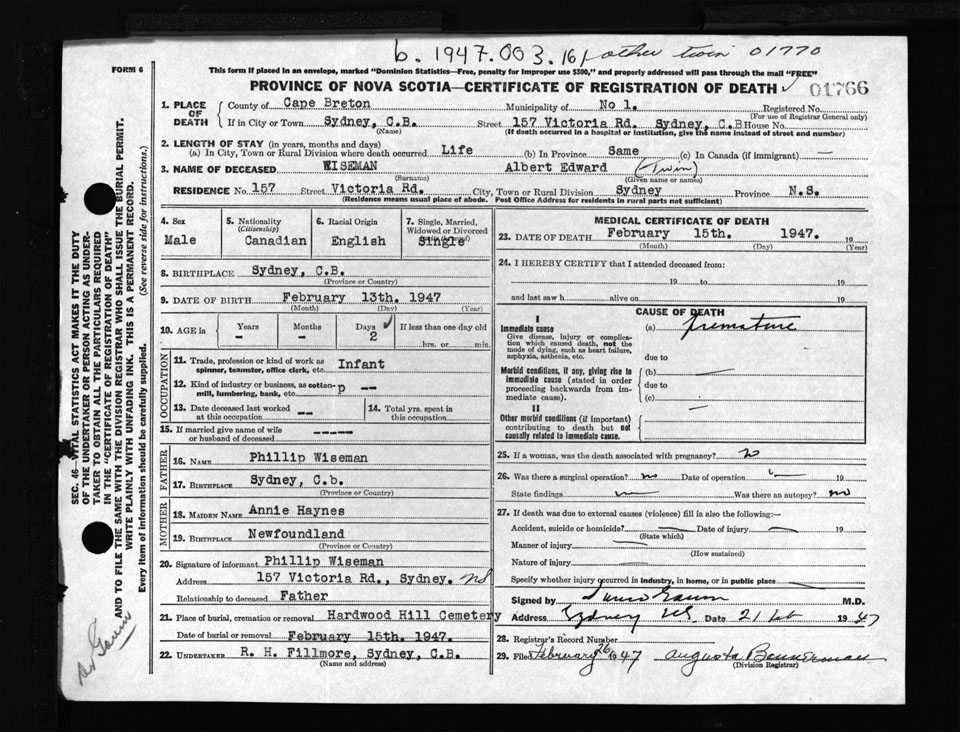 b. 1947.003.161 other twin 01770
FORM 6
This form if placed in an envelope, marked "Dominion Statistics—Free, penalty for improper use $300," and properly addressed will pass through the mail "FREE"
PROVINCE OF NOVA SCOTIA—CERTIFICATE OF REGISTRATION OF DEATH 01766
1. PLACE OF DEATH
County of Cape Breton Municipality of No 1. Registered No.
(For use of Registrar General only)
If in City or Town Sydney, C.B. Street 157 Victoria Rd. Sydney, C.B House No.
(Name) (If death occurred in a hospital or institution, give the name instead of street and number)
2. LENGTH OF STAY (in years, months and days)
(a) In City, Town or Rural Division where death occurred Life (b) In Province Same (c) In Canada (if immigrant) —
3. NAME OF DECEASED WISEMAN Albert Edward (Twin)
(Surname) (Given name or names)
RESIDENCE No 157 Street Victoria Rd. City, Town or Rural Division Sydney Province N.S.
(Residence means usual place of abode. Post Office Address for residents in rural parts not sufficient)
4. Sex Male
5. Nationality (Citizenship) Canadian
6. Racial Origin English
7. Single, Married, Widowed or Divorced Single
8. BIRTHPLACE Sydney, C.B.
(Province or Country)
9. DATE OF BIRTH February 13th. 1947
(Month) (Day) (Year)
10. AGE in Years - Months - Days 2 If less than one day old hrs. or min.
OCCUPATION
11. Trade, profession or kind of work as spinner, teamster, office clerk, etc. Infant
12. Kind of industry or business, as cotton-mill, lumbering, bank, etc. p --
13. Date deceased last worked at this occupation --
14. Total yrs. spent in this occupation
15. If married give name of wife or husband of deceased -----
FATHER
16. NAME Phillip Wiseman
17. BIRTHPLACE Sydney, C.b.
(Province or Country)
MOTHER
18. MAIDEN NAME Annie Haynes
19. BIRTHPLACE Newfoundland
(Province or Country)
20. Signature of informant Phillip Wiseman
Address 157 Victoria Rd., Sydney. NS
Relationship to deceased Father
21. Place of burial, cremation or removal Hardwood Hill Cemetery
Date of burial or removal February 15th. 1947.
22. UNDERTAKER R. H. Fillmore, Sydney, C.B.
(Name and address)
MEDICAL CERTIFICATE OF DEATH
23. DATE OF DEATH February 15th. 1947. 19
(Month) (Day) (Year)
24. I HEREBY CERTIFY that I attended deceased from:
19 to 19
and last saw h alive on 19
CAUSE OF DEATH
I
Immediate cause
Give disease, injury or complication which caused death, not the mode of dying, such as heart failure, asphyxia, asthenia, etc.
(a) Premature
due to
Morbid conditions, if any, giving rise to immediate cause (stated in order proceeding backwards from immediate cause).
(b) —
due to
(c)
II
Other morbid conditions (if important) contributing to death but not causally related to immediate cause.
—
25. If a woman, was the death associated with pregnancy? no
26. Was there a surgical operation? no Date of operation 19
State findings Was there an autopsy? no
27. If death was due to external causes (violence) fill in also the following:—
Accident, suicide or homicide? Date of injury 19
(State which)
Manner of injury
(How sustained)
Nature of injury
Specify whether injury occurred in industry, in home, or in public place
Signed by M.D.
Address Sydney NS Date 21 Feb 1947
28. Registrar's Record Number
29. Filed February 26 1947 Augusta Bannerman
(Division Registrar)
SEC. 46—VITAL STATISTICS ACT MAKES IT THE DUTY
OF THE UNDERTAKER OR PERSON ACTING AS UNDER-
TAKER TO OBTAIN ALL THE PARTICULARS REQUIRED
IN THE "CERTIFICATE OF REGISTRATION OF DEATH"
AND TO FILE THE SAME WITH THE DIVISION REGISTRAR WHO SHALL ISSUE THE BURIAL PERMIT.
WRITE PLAINLY WITH UNFADING INK. THIS IS A PERMANENT RECORD.
Every item of information should be carefully supplied. (See reverse side for instructions.)
Dr Gaum